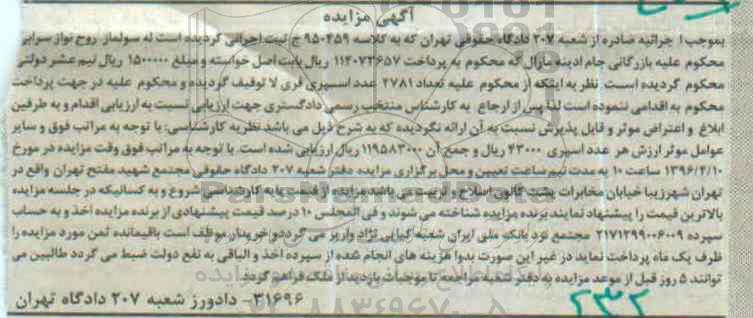 آگهی مزایده
بموجب اجرائیه صادره از شعبه ۲۰۷ دادگاه حقوقی تهران که به کلاسه ۹۵۰۴۵۹ ج ثبت اجرائی گردیده است له سولماز روح نواز سرابی
محکوم علیه بازرگانی جام ادینه مارال که محکوم به پرداخت ۱۱۴۰۷۳۶۵۷ ریال بابت اصل خواسته و مبلغ ۱۵۰۰۰۰۰ ریال نیم عشر دولتی
محکوم گردیده است. نظر به اینکه از محکوم علیه تعداد ۲۷۸۱ عدد اسپری فری لا توقیف گردیده و محکوم علیه در جهت پرداخت
محکوم به اقدامی ننموده است لذا پس از ارجاع به کارشناس منتخب رسمی دادگستری جهت ارزیابی نسبت به ارزیابی اقدام و به طرفین
ابلاغ و اعتراض موثر و قابل پذیرش نسبت به آن ارائه نگردیده که به شرح ذیل می باشد نظریه کارشناسی: با توجه به مراتب فوق و سایر
عوامل موثر ارزش هر عدد اسپری ۴۳۰۰۰ ریال و جمع آن ۱۱۹۵۸۳۰۰۰ ریال ارزیابی شده است. با توجه به مراتب فوق وقت مزایده در مورخ
۱۳۹۶/۴/۱۰ ساعت ۱۰ به مدت نیم ساعت تعیین و محل برگزاری مزایده دفتر شعبه ۲۰۷ دادگاه حقوقی مجتمع شهید مفتح تهران واقع در
تهران شهرزیبا خیابان مخابرات پشت کانون اصلاح و تربیت می باشد مزایده از قیمت پایه کارشناسی شروع و به کسانیکه در جلسه مزایده
بالاترین قیمت را پیشنهاد نمایند برنده مزایده شناخته می شوند و فی المجلس ۱۰ درصد قیمت پیشنهادی از برنده مزایده اخذ و به حساب
سپرده ۲۱۷۱۲۹۹۰۰۶۰۰۹ مجتمع نزد بانک ملی ایران شعبه کیایی نژاد واریز می گردد و خریدار موظف است باقیمانده ثمن مورد مزایده را
ظرف یک ماه پرداخت نماید در غیر این صورت بدوا هزینه های انجام شده از سپرده اخذ و الباقی به نفع دولت ضبط می گردد طالبین می
توانند ۵ روز قبل از موعد مزایده به دفتر شعبه مراجعه تا موجبات بازدید از ملک فراهم گردد.
۳۱۶۹۶- دادورز شعبه ۲۰۷ دادگاه تهران
۲۳۲
ParsNamadData
۰۲۱-۸۸۳۴۹۶۷۰-۵